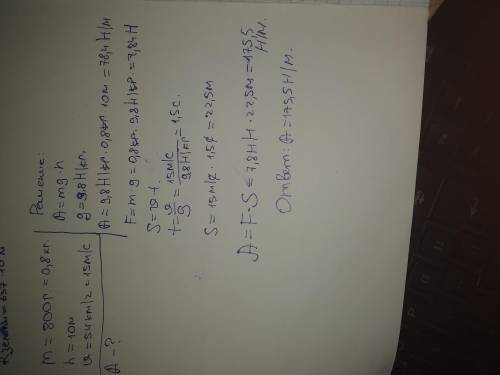 m = 800г = 0,8 кг.
h = 10м
v = 54 км/ч = 15м/с
A - ?
Решение:
A = mg·h
g = 9,8 Н/кг.
A = 9,8Н/кг · 0,8кг · 10м = 78,4 Н/м
F = m·g = 0,8кг · 9,8Н/кг = 7,84 Н
S = v·t.
t = v/g = 15м/с / 9,8Н/кг = 1,5с.
S = 15м/с · 1,5с = 22,5м
A = F·S = 7,8 НН · 22,5м = 175,5
Н/м.
Ответ: A = 175,5 Н/м.